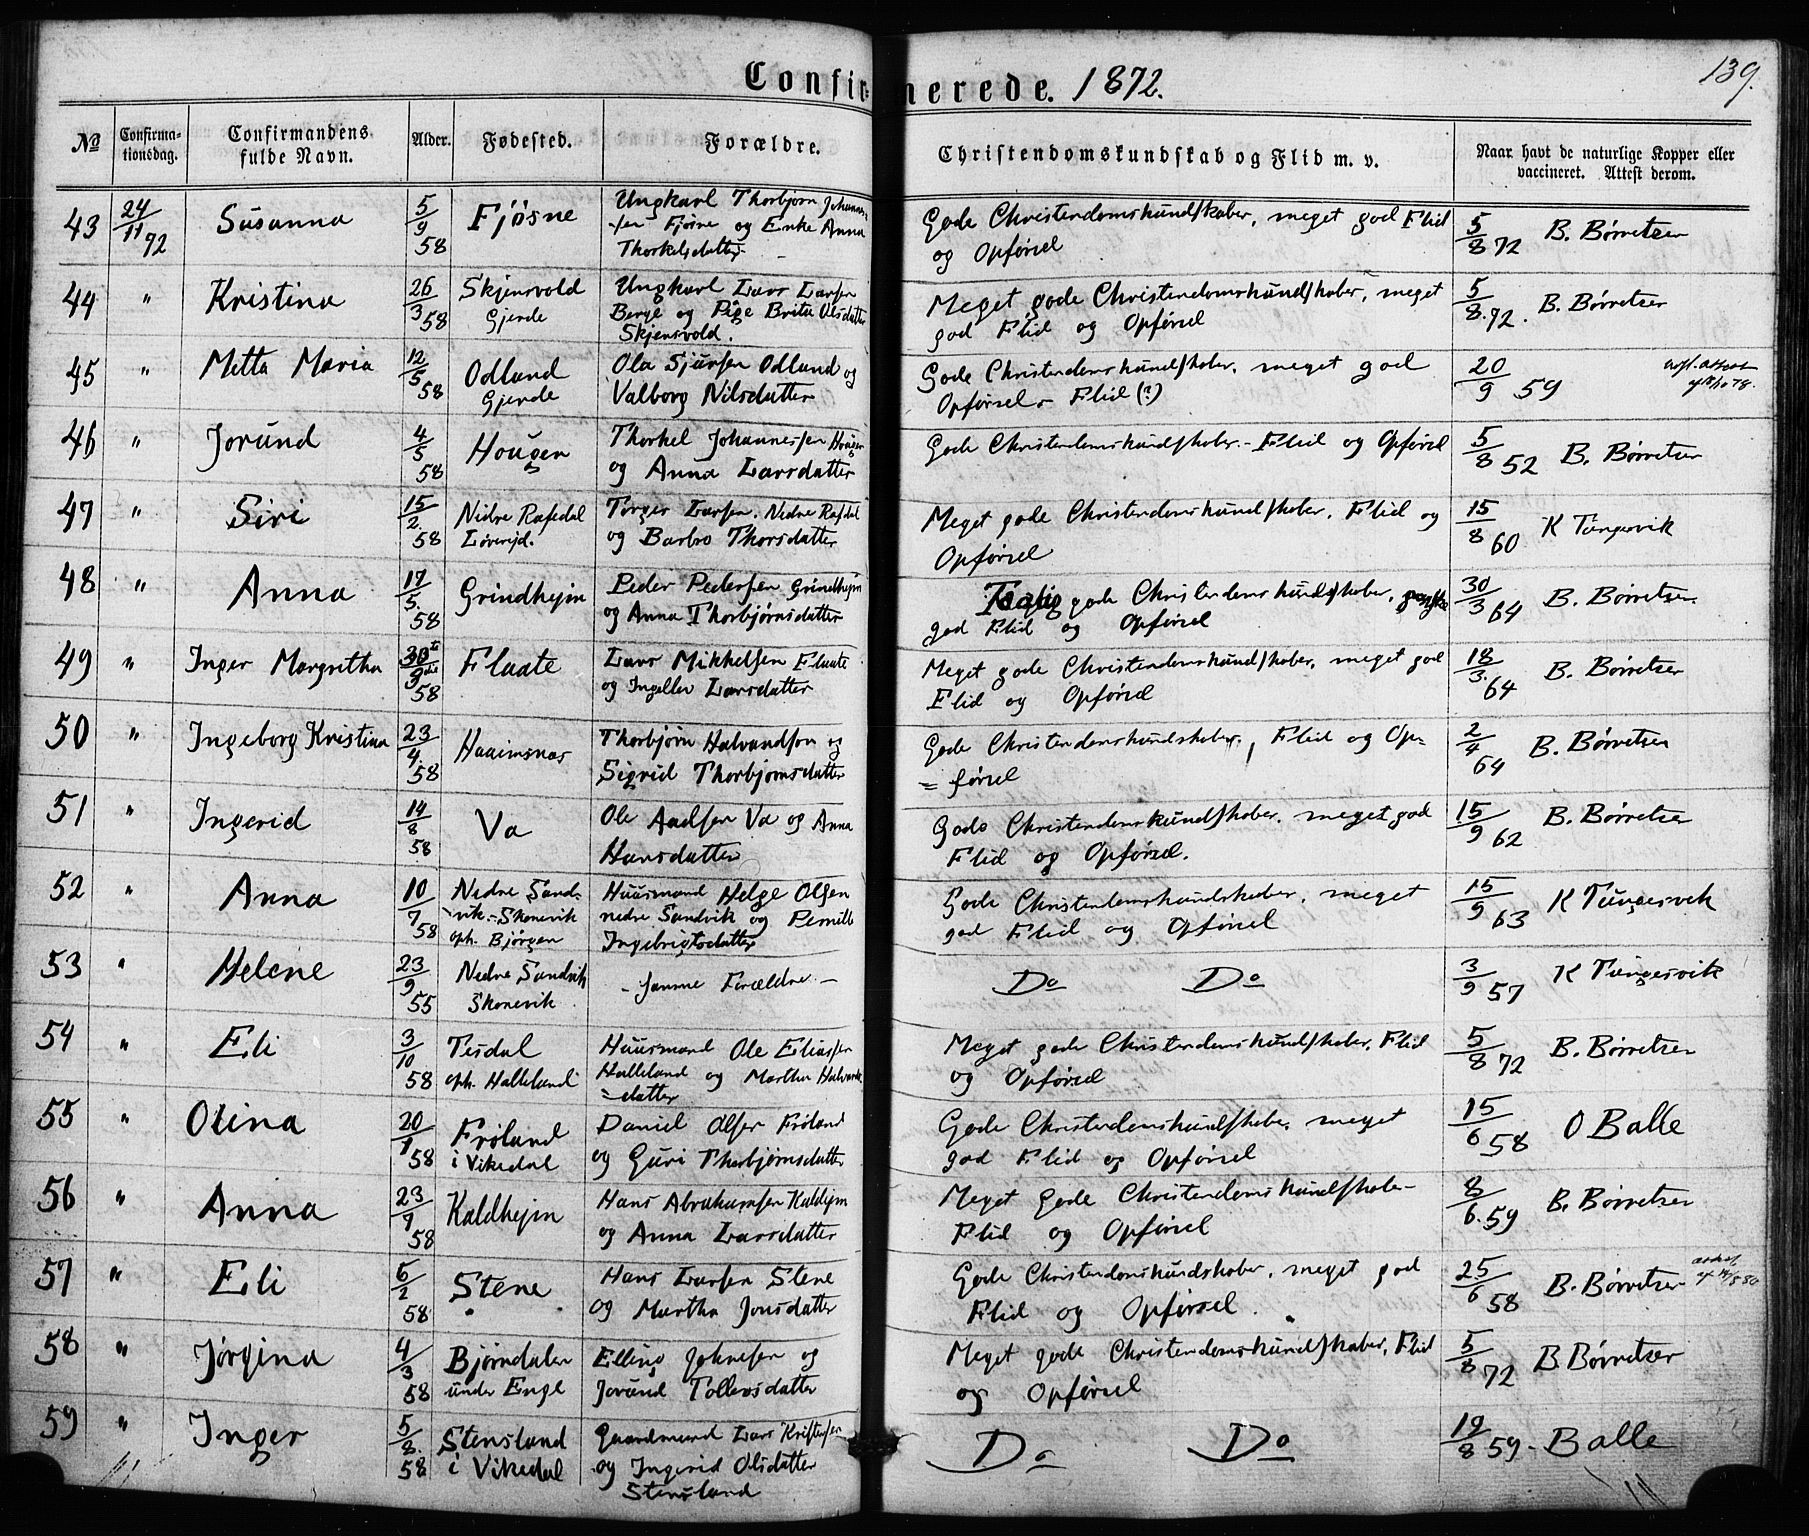 Confirmerede. 1872.
139.
No
Confirma-
tionsdag.
Confirmandens
fulde Navn.
Alder.
Fødested.
Forældre.
Christendomskundskab og Flid m. v.
Naar havt de naturlige Kopper eller
vaccineret. Attest derom.
43 24/11 72 Susanna 5/9 58 Fjøsne Ungkarl Thorbjørn Johannes-
sen Fjøsne og Enke Anna
Thorkelsdatter
Gode Christendomskundskaber, meget god Flid
og Opførsel
5/8 72 B. Børretsen
44 " Kristina 26/3 58 Skjensvold
Gjerde
Ungkarl Lars Larsen
Berge og Pige Brita Olsdatter
Skjensvold.
Meget gode Christendomskundskaber, meget
god Flid og Opførsel
5/8 72. B. Børretsen
45 " Metta Maria 12/5 58 Odland
Gjerde
Ola Sjursen Odland og
Valborg Nilsdatter
Gode Christendomskundskaber, meget god
Opførsel - Flid (?)
20/9 59
46 " Jorund 4/5 58 Hougen
Thorkel Johannessen Hougen
og Anna Larsdatter
Gode Christendomskundskaber - Flid og Opførsel
5/8 52 B. Børretsen
47 " Siri 15/2 58 Nedre Rafsdal
Torger Larsen. Nedre Rafsdal
og Barbro Thorsdatter
Meget gode Christendomskundskaber, Flid og
Opførsel
15/8 60 K Tungesvik
48 " Anna 17/5 58 Grindhejm
Peder Pedersen Grindhejm
og Anna Thorbjørnsdatter
gode Christendomskundskaber, ganske
god Flid og Opførsel
30/3 64 B. Børretsen
49 " Inger Margretha 30te/9de 58 Flaate
Lars Mikkelsen Flaate
og Ingeller Larsdatter
Meget gode Christendomskundskaber, meget god
Flid og Opførsel
18/3 64 B. Børretsen
50 " Ingeborg Kristina 23/4 58 Haaimsnæs
Thorbjørn Halvardsen og
Sigrid Thorbjørnsdatter
Gode Christendomskundskaber, Flid og Op-
= førsel
2/4 64 B. Børretsen
51 " Ingerid 14/8 58 Va
Ole Aadsen Va og Anna
Hansdatter
Gode Christendomskundskaber, meget god
Flid og Opførsel.
15/9 62 B. Børretsen
52 " Anna 10/7 58 Nedre Sand-
vik - Skonevik
oph. Bjørgen
Huusmand Helge Olsen
nedre Sandvik og Pernille
Ingebrigtsdatter
Gode Christendomskundskaber, meget
god Flid og Opførsel
15/9 63 K Tungesvik
53 " Helene 23/9 55 Nedre Sandvik
Skonevik
- Samme Forældre -
Do Do
3/9 57 K Tungesvik
54 " Eli 3/10 58 Tesdal
oph. Halleland
Huusmand Ole Eliassen
Halleland og Martha Halvards
=datter
Meget gode Christendomskundskaber, Flid
og Opførsel
5/8 72 B. Børretsen
55 " Olina 20/1 58 Frøland
i Vikedal
Daniel Olsen Frøland
og Guri Thorbjørnsdatter
Gode Christendomskundskaber, meget
god Flid og Opførsel
15/6 58 O Balle
56 " Anna 23/9 58 Kaldhejm
Hans Abrahamsen Kaldhejm
og Anna Larsdatter
Meget gode Christendomskundskaber -
Flid og Opførsel
8/6 59 B. Børretsen
57 " Eli 6/2 58 Stene
Hans Larsen Stene
og Martha Jonsdatter
Gode Christendomskundskaber, meget god
Flid og Opførsel.
25/6 58 B. Børretsen
58 " Jørgina 4/3 58 Bjørndalen
under Enge
Elling Johnesen og
Jorund Tollevsdatter
Meget gode Christendomskundskaber, Flid
og Opførsel
5/8 72 B Børretsen
59 " Inger 5/8 58 Stensland
i Vikedal
Gaardmand Lars Kristensen
og Ingerid Olsdatter
Stensland
Do Do
19/8 59 - Balle